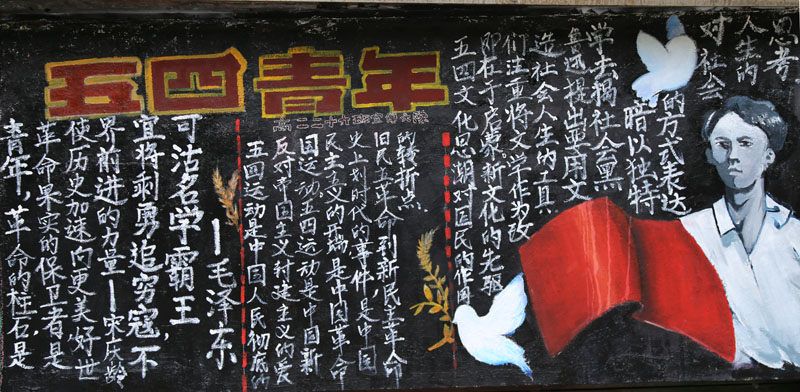 五四青年
青年,革命的柱石是
革命果实的保卫者是
使历史加速向更美好世
界前进的力量—宋庆龄
宜将剩勇追穷寇,不
可沽名学霸王,
—毛泽东
五四运动是中国人民彻底的
反对中国主义封建主义的爱
国运动五四运动是中国新
民主主义的开端是中国革命
史上划时代的事件,是中国
旧民主革命到新民主革命
的转折点
五四文化思潮对国民的作用
即在于启蒙。新文化的先驱
们注重将文学作为改
造社会人生的工具
鲁迅提出要用文
学去揭社会黑
暗以独特
的方式表达
对社会
人生的
思考